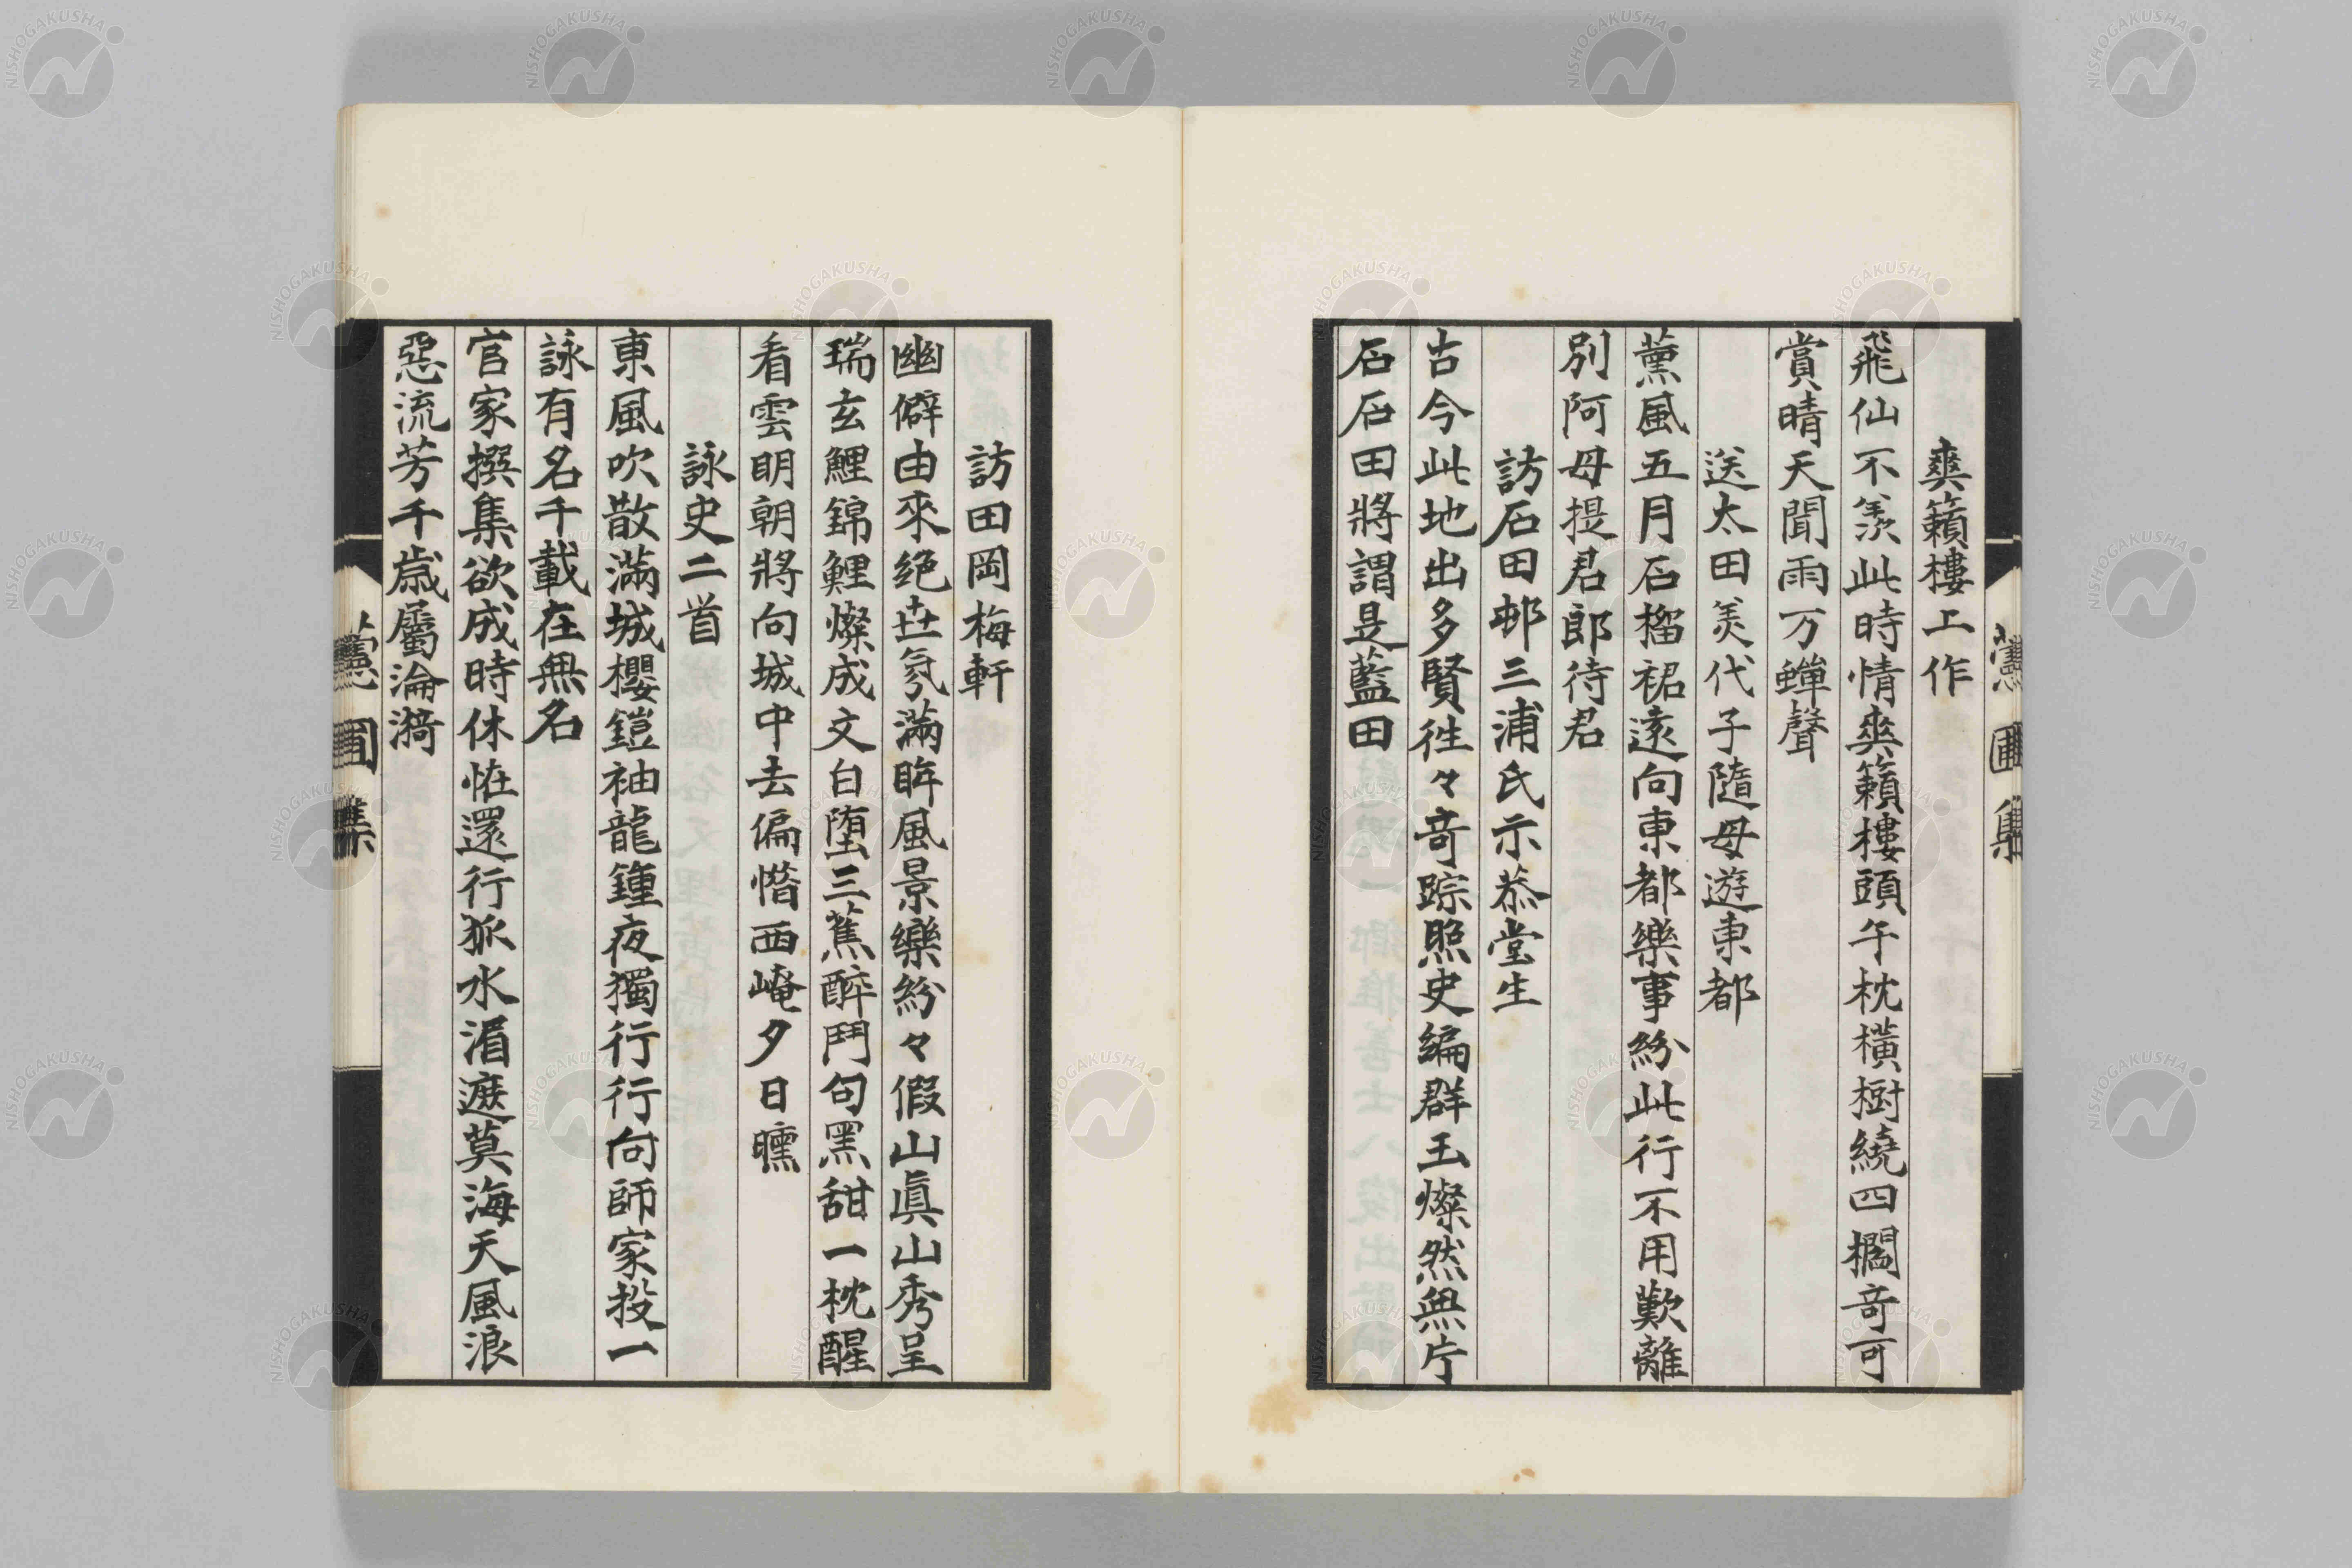 爽籟樓上作
飛仙不羨此時情爽籟樓頭午枕橫樹繞四欄奇可
賞晴天聞雨万蟬聲
送太田美代子隨母遊東都
薰風五月石榴裙遠向東都樂事紛此行不用歎離
別阿母提君郎待君
訪石田邨三浦氏示恭堂生
古今此地出多賢往々奇踪照史編群玉燦然無片
石石田將謂是藍田
訪田岡梅軒
幽僻由來絕𠀍氛滿眸風景樂紛々假山眞山秀呈
瑞玄鯉錦鯉燦成文白墮三蕉醉鬥句黑甜一枕醒
看雲明朝將向城中去偏惜西崦夕日曛
詠史二首
東風吹散滿城櫻鎧袖龍鍾夜獨行行向師家投一
詠有名千載在無名
官家撰集欲成時休恠還行狐水湄遮莫海天風浪
惡流芳千歲屬淪漪
圃集
NISHOGAKUSHA